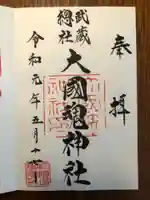 奉拝
武蔵
總社
大國魂神社
令和元年五月十六日